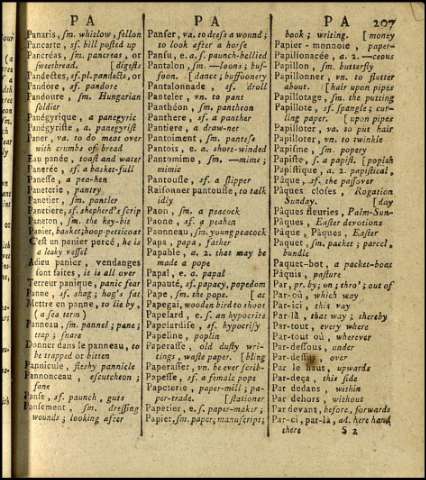 P A
P A
P A
207
Panaris, sm. whitlow, fellon
Pancarte, sf. bill posted up
Pancréas, sm. pancreas, or
sweetbread. [digests
Pandectes, sf. pl. pandects, or
Pandore, sf. pandore
Pandoure, sm. Hungarian
soldier
Panégyrique, a panegyric
Panégyriste, a panegyrist
Paner, va. to do meat over
with crumbs of bread
Eau panée, toast and water
Panerée, sf. a basket-full
Panesse, a pea-hen
Paneterie, pantry
Panetier, sm. pantler
Panetiere, sf. shepherd's scrip
Paneton, sm. the key-bit
Panier, basket; hoop-petticoat
C'est un panier percé, he is
a leaky vessel
Adieu panier, vendanges
sont faites, it is all over
Terreur panique, panic fear
Panne, sf. shag; hog's fat
Mettre en panne, to lie by,
(a sea term)
Panneau, sm. pannel; pane;
trap; snare
Donner dans le panneau, to
be trapped or bitten
Pannicule, fleshy pannicle
Pannonceau, escutcheon;
fane
Panse, sf. paunch, guts
Pansement, sm. dressing
wounds; looking after
Panser, va. to dress a wound;
to look after a horse
Pansu, e. a. s. paunch-bellied
Pantalon, sm. —loons; buf-
foon. [dance; buffoonery
Pantalonnade, sf. droll
Panteler, vn. to pant
Panthéon, sm. pantheon
Panthere, sf. a panther
Pantiere, a draw-net
Pantoiment, sm. panteſs
Pantois, e. a. short-winded
Pantomime, sm. —mime; a.
mimic
Pantoufle, sf. a slipper
Raisonner pantoufle, to talk
idly
Paon, sm. a peacock
Paone, sf. a peahen
Paonneau, sm. young peacock
Papa, papa, father
Papable, a. 2. that may be
made a pope
Papal, e. a. papal
Papauté, sf. papacy, popedom
Pape, sm. the pope. [at
Papegai, wooden bird to shoot
Papelard, e. s. an hypocrite
Papelardise, sf. hypocrisy
Papeline, poplin
Paperasse, old dusty wri-
tings, waste paper. [bling
Paperasser, vn. be ever scrib-
Papesse, sf. a female pope
Papeterie, paper-mill; pa-
per-trade. [stationer
Papetier, e. s. paper-maker;
Papier, sm. paper; manuscript;
book; writing. [money
Papier-monnoie, paper-
Papilionacée, a. 2. —ceous
Papillon, sm. butterfly
Papillonner, vn. to flutter
about. [hair upon paper
Papillotage, sm. the putting
Papillote, sf. spangle; cur-
ling paper. [upon pipes
Papilloter, va. to put hair
Papilloter, vn. to twinkle
Papisme, sm. popery
Papiste, s. a papist. [popish
Papistique, a. 2. papistical,
Pâque, sf. the passover
Pâques closes, Rogation
Sunday. [day
Pâques fleuries, Palm-Sun-
Pâques, Easter devotions
Pâque, Pâques, Easter
Paquet, sm. packet; parcel,
bundle
Paquet-bot, a packet-boat
Pâquis, pasture
Par, pr. by; on; thro'; out of
Par-où, which way
Par-ici, this way
Par-là, that way; thereby
Par-tout, every where
Par-tout où, wherever
Par-dessous, under
Par-dessus, over
Par le haut, upwards
Par-deça, this side
Par dedans, within
Par dehors, without
Par devant, before, forwards
Par-ci, par-là, ad. here and
there
S 2